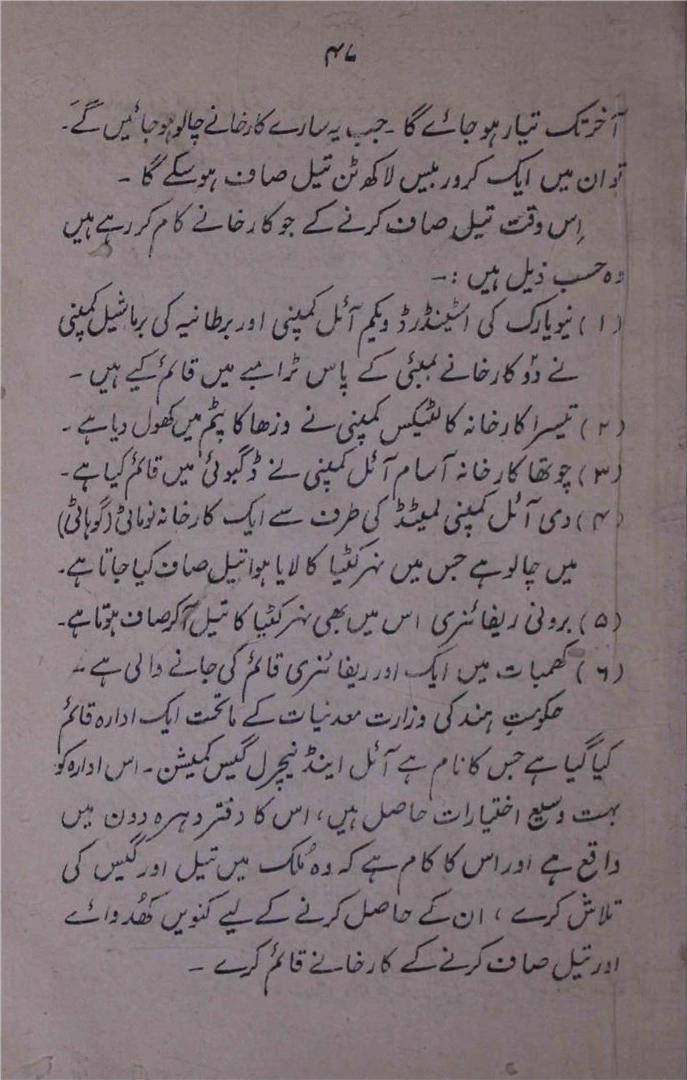 ۴۷
آخر تک تیار ہو جائے گا ۔ جب یہ سارے کارخانے چالو ہو جائیں گے۔
تو ان میں ایک کرور بیس لاکھ ٹن تیل صاف ہو سکے گا ۔
اِس وقت تیل صاف کرنے کے جو کارخانے کام کر رہے ہیں
وہ حسب ذیل ہیں :۔
(۱) نیویارک کی اسٹینڈرڈ ویکم آئل کمپنی اور برطانیہ کی برماشیل کمپنی
نے دَو کارخانے بمبئی کے پاس ٹرامبے میں قائم کیے ہیں ۔
(۲) تیسرا کارخانہ کالٹیکس کمپنی نے وزھاکا پٹم میں کھول دیا ہے ۔
(۳) چوتھا کارخانہ آسام آئل کمپنی نے ڈگبوئی میں قائم کیا ہے۔
(۴) دی آئل کمپنی لمیٹڈ کی طرف سے ایک کارخانہ نوماٹی (گوہاٹی)
میں چالو ہے جس میں نہر کٹیا کا لایا ہوا تیل صاف کیا جاتا ہے۔
(۵) برونی ریفائنری اس میں بھی نہر کٹیا کا تیل آکر صاف ہوتا ہے۔
(۶) کھمبات میں ایک اور ریفائنری قائم کی جانے والی ہے ۔
حکومتِ ہند کی وزارت معدنیات کے ماتحت ایک ادارہ قائم
کیا گیا ہے جس کا نام ہے آئل اینڈ نیچرل گیس کمیشن ۔ اس ادارہ کو
بہت وسیع اختیارات حاصل ہیں، اس کا دفتر دہرہ دون میں
واقع ہے اور اس کا کام ہے کہ وہ مُلک میں تیل اور گیس کی
تلاش کرے ، ان کے حاصل کرنے کے لیے کنویں کھُدوائے
اور تیل صاف کرنے کے کارخانے قائم کرے ۔